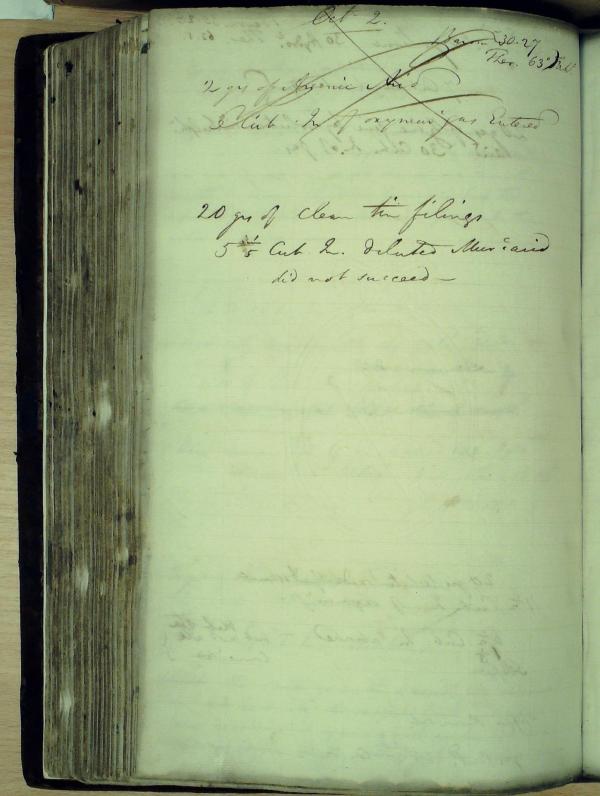 Oct 2.
Barom 30.27
Ther. 63° Fah
2 grs of Arsenic Acid
3 Cub. In. of oxymur gas entered
20 grs of clean tin filings
5 1/5 Cub. In. diluted Mur.c acid
did not succeed —